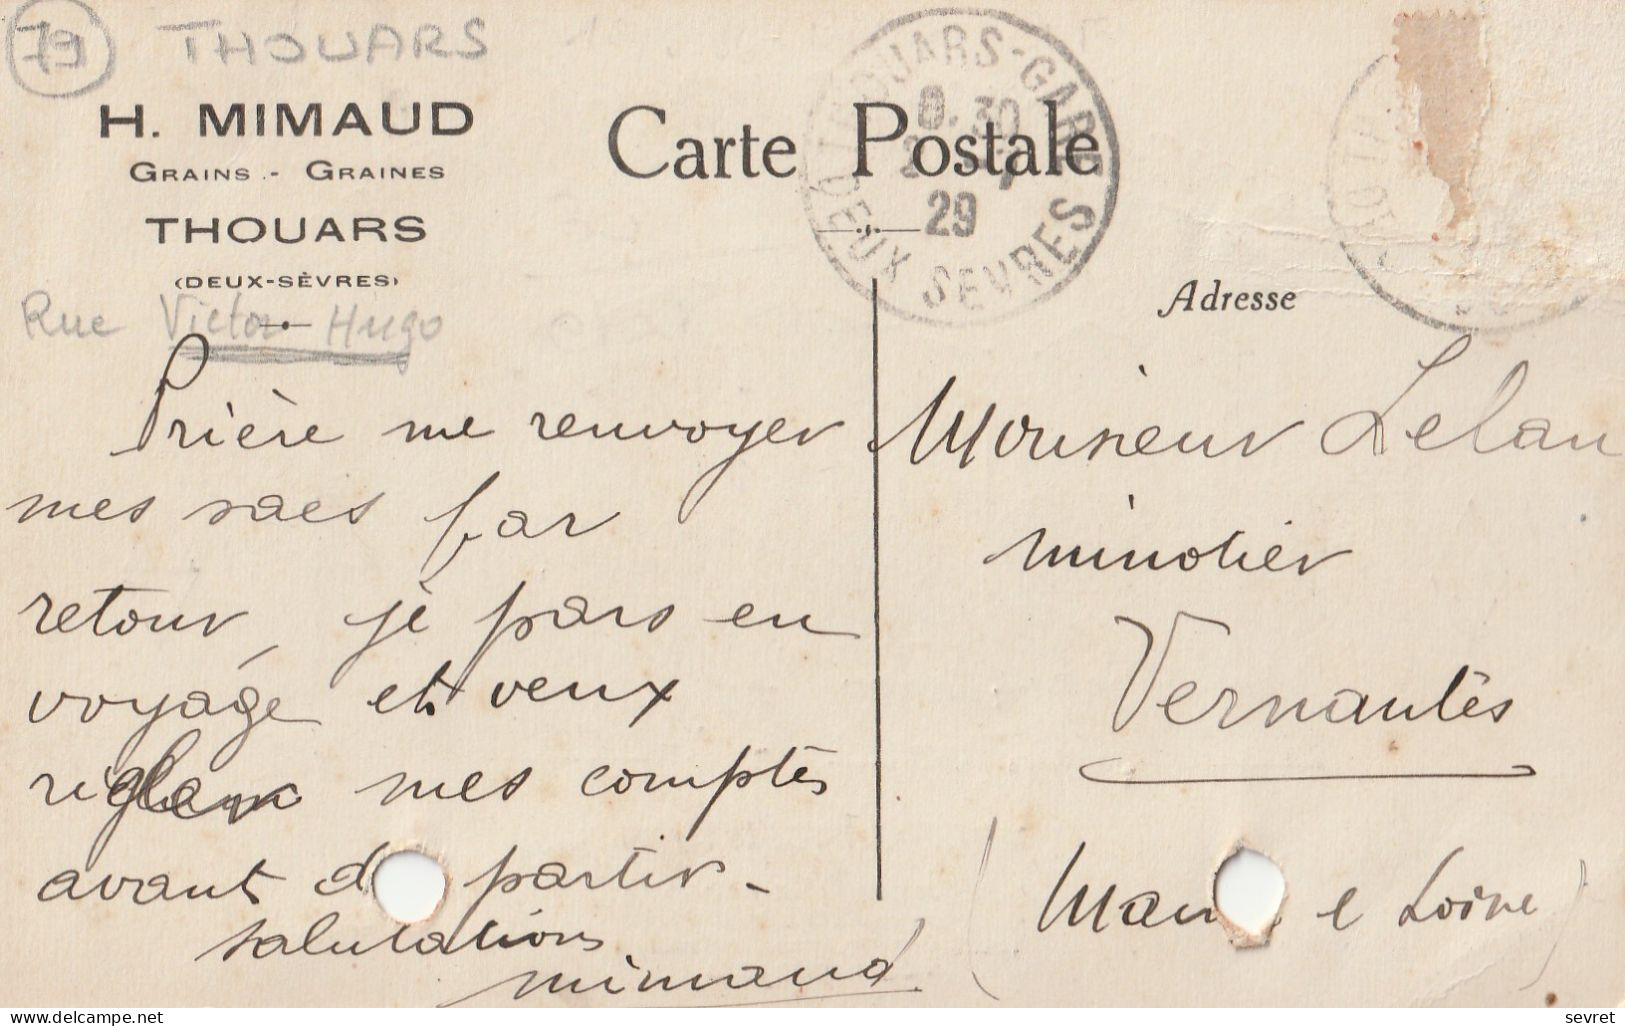 79 THOUARS
H. MIMAUD
GRAINS - GRAINES
THOUARS
(DEUX-SÈVRES)
Rue Victor Hugo
Carte Postale
THOUARS-GARE
8.30
29
DEUX SEVRES
Adresse
Prière me renvoyer
mes sacs par
retour, je pars en
voyage et veux
régler mes comptes
avant d partir -
salutations
Mimaud
Monsieur Lelau
minotier
Vernantes
(Main e Loire)
sevret
delcampe.net